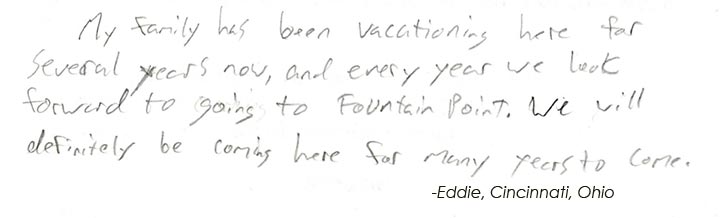 My family has been vacationing here for
several years now, and every year we look
forward to going to Fountain Point. We will
definitely be coming here for many years to come.
-Eddie, Cincinnati, Ohio